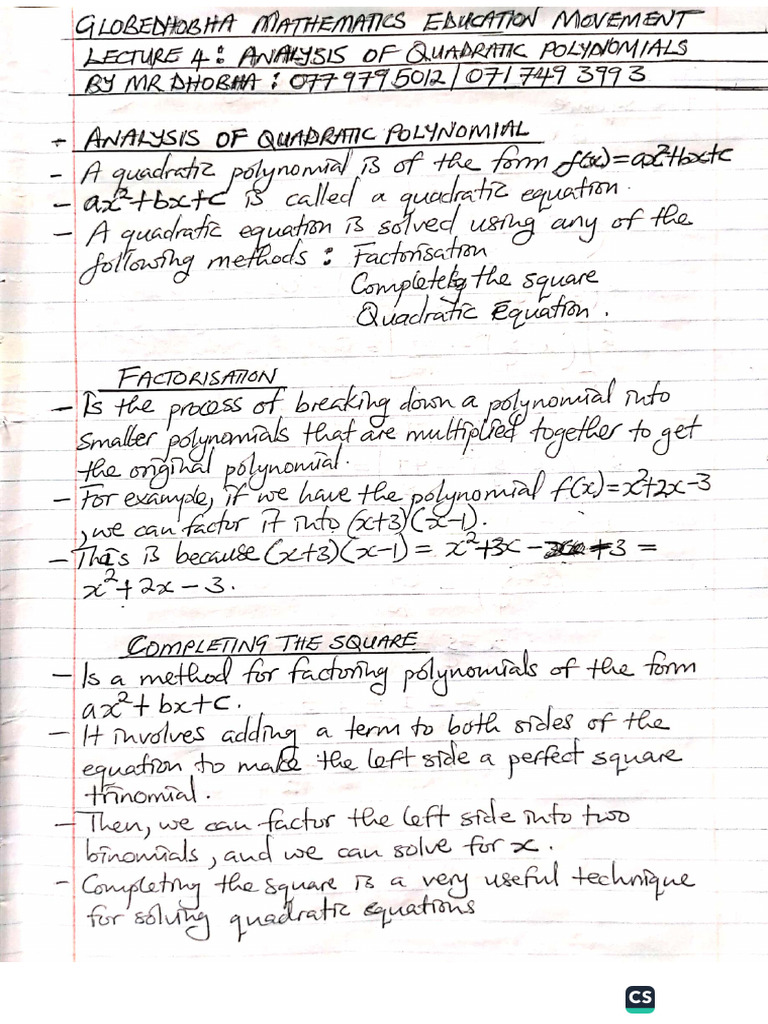 GLOBEDHOBHA MATHEMATICS EDUCATION MOVEMENT
LECTURE 4: ANALYSIS OF QUADRATIC POLYNOMIALS
BY MR DHOBHA: 077 979 5012/071 749 3993
- ANALYSIS OF QUADRATIC POLYNOMIAL
- A quadratic polynomial is of the form f(x)=ax²+bx+c
- ax²+bx+c is called a quadratic equation.
- A quadratic equation is solved using any of the
following methods: Factorisation
Completely the square
Quadratic Equation.
FACTORISATION
- Is the process of breaking down a polynomial into
smaller polynomials that are multiplied together to get
the original polynomial.
- For example, if we have the polynomial f(x)=x²+2x-3
, we can factor it into (x+3)(x-1).
- This is because (x+3)(x-1) = x²+3x - +3 =
x²+2x-3.
COMPLETING THE SQUARE
- Is a method for factoring polynomials of the form
ax²+bx+c.
- It involves adding a term to both sides of the
equation to make the left side a perfect square
trinomial.
- Then, we can factor the left side into two
binomials, and we can solve for x.
- Completing the square is a very useful technique
for solving quadratic equations
CS